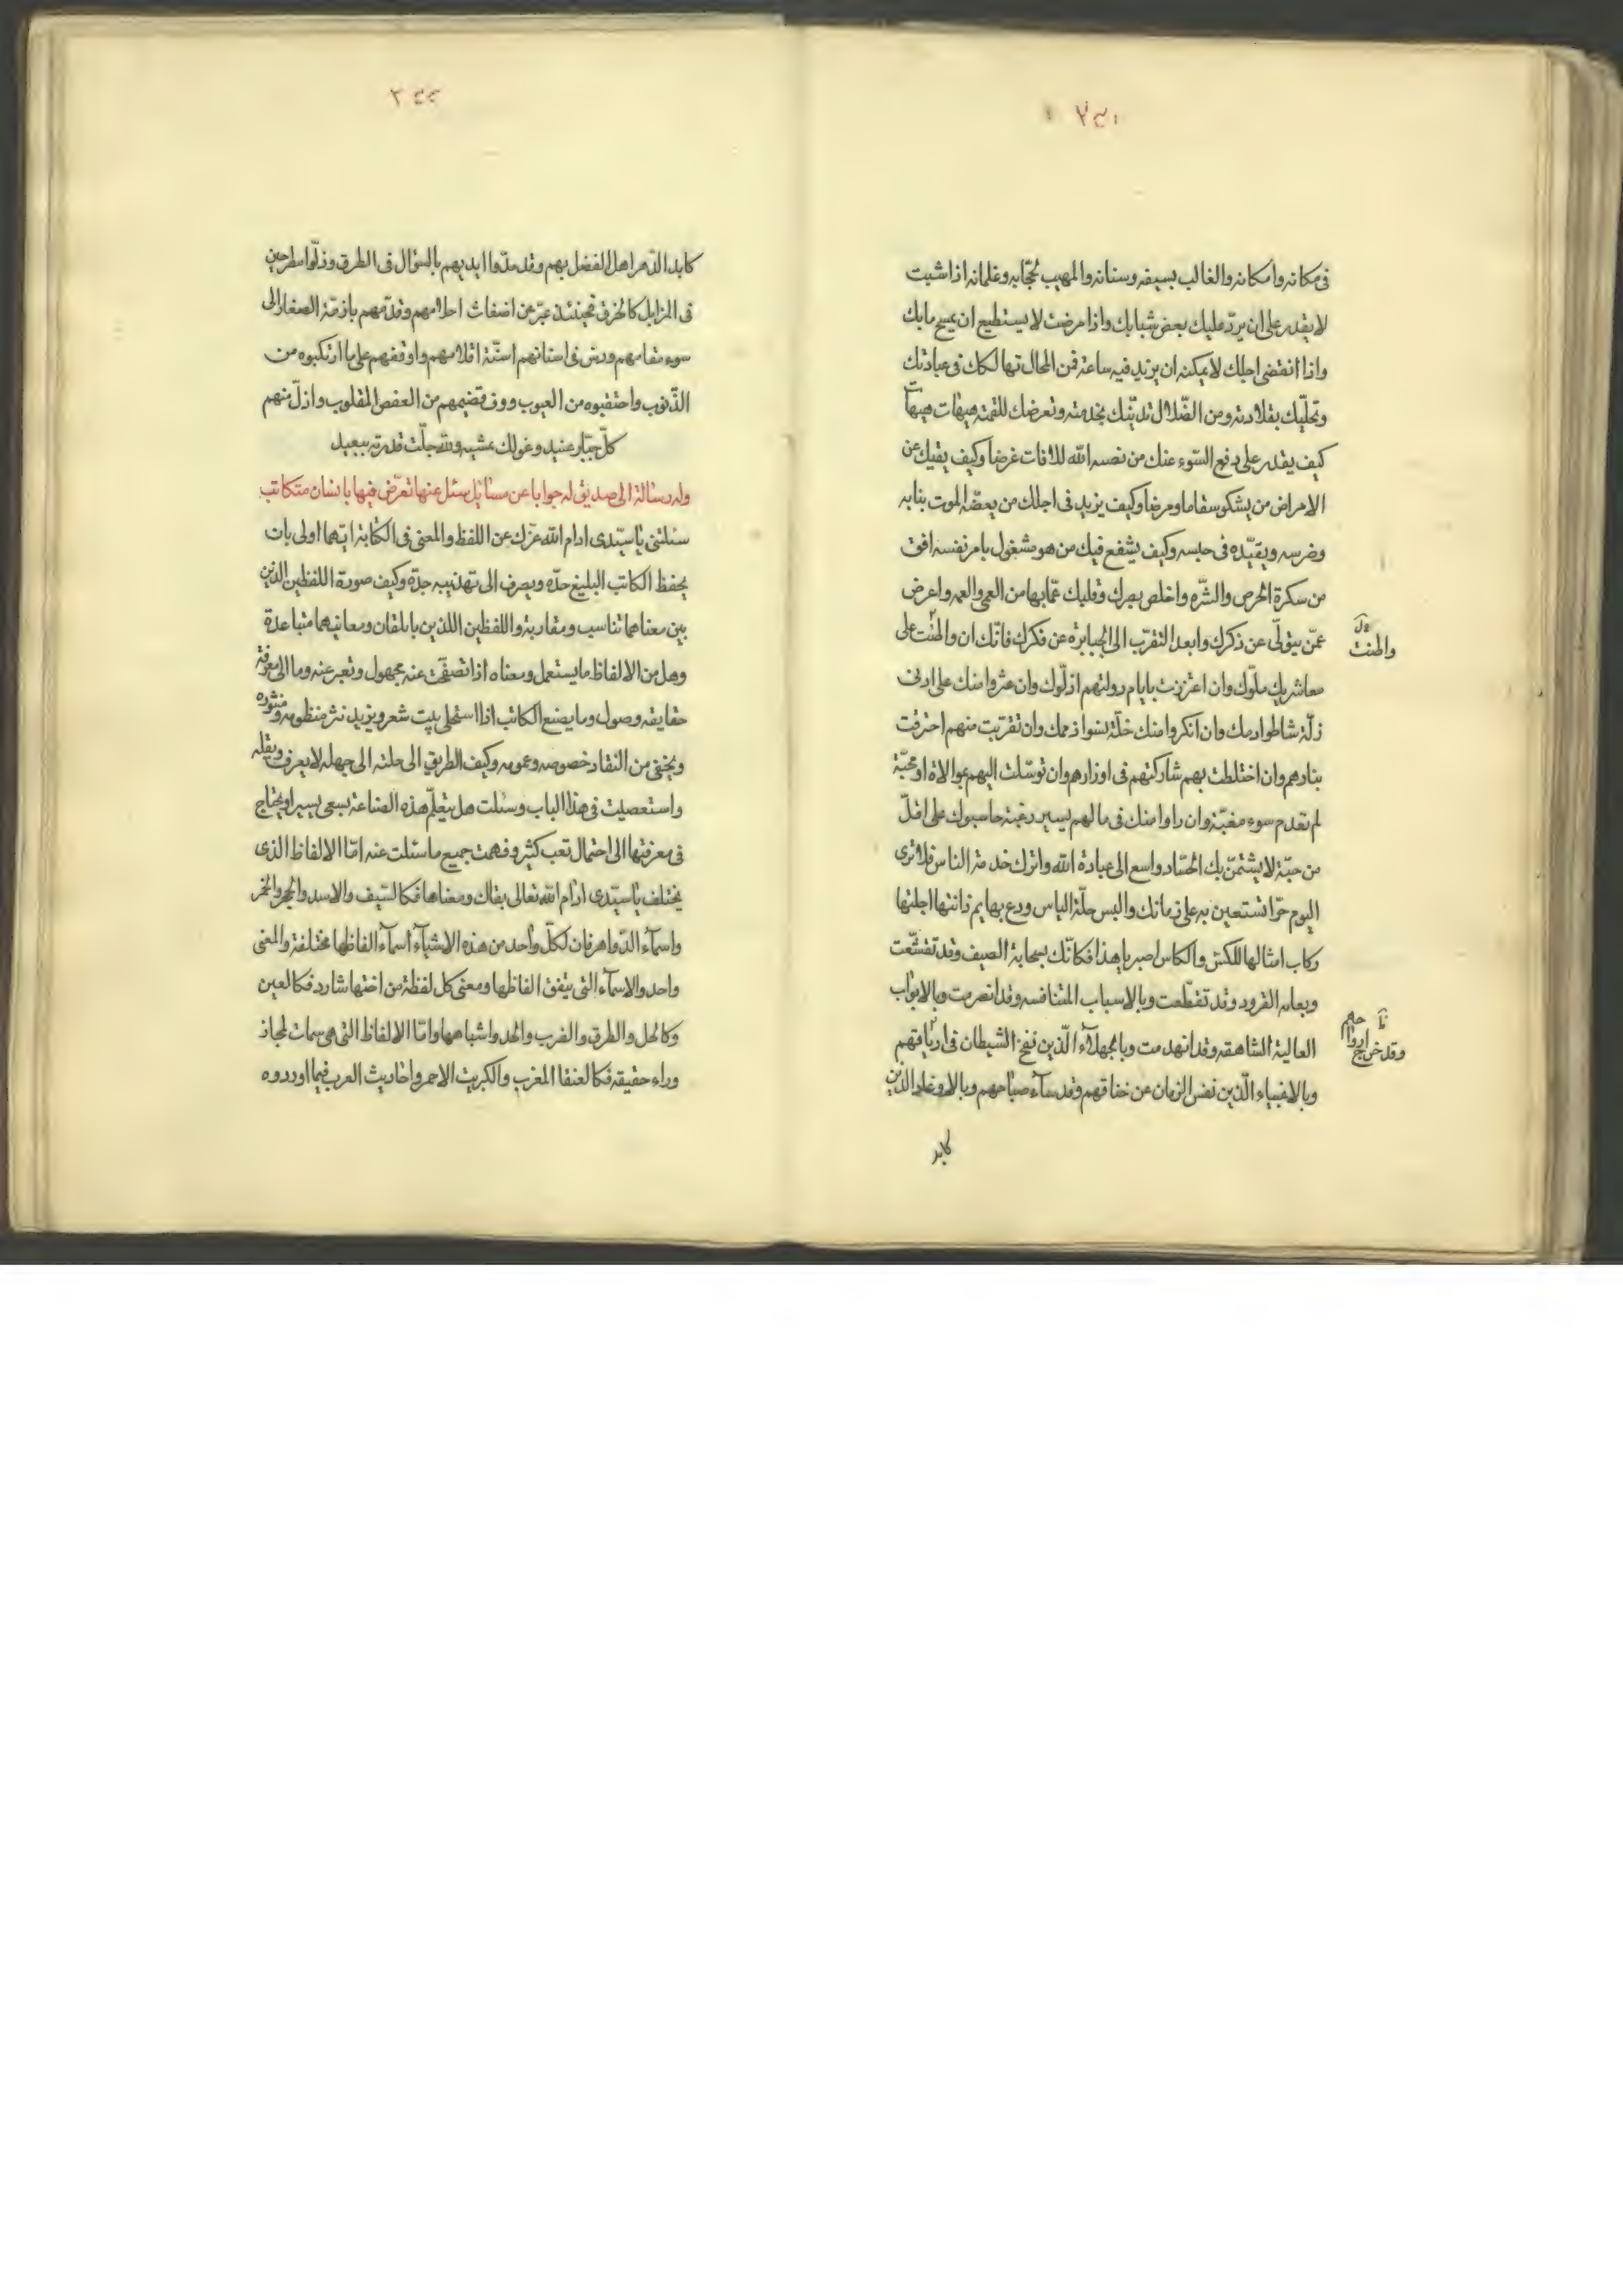 فى مكانه وامكانه والغالب بسيفه وسنانه والمهيب بحجّابه وغلمانه اذا شبت
لا يقدر على ان يردّ عليك بعض شبابك واذا مرضت لا يستطيع ان يمسح ما بك
واذا انقضى اجلك لا يمكنه ان يزيد فيه ساعة فمن المحال تهالكك فى عبادتك
وتحلّيك بقلادته ومن الضّلال تدينّك بخدمته وتعرضك للقمته هيهات هيهات
كيف يقدر على دفع السّوء عنك من نصبه الله للافات غرضا وكيف يقيك عن
الامراض من يشكو سقاما ومرضا وكيف يزيد فى اجلك من يعضّه الموت بنابه
وضرسه ويقيّده فى حبسه وكيف يشفع فيك من هو مشغول بامر نفسه افق
من سكرة الحرص والشّره واخلص بصرك وقلبك عمّا بها من العمى والعمه واعرض
عمّن يتولّى عن ذكرك وابعد التقرّب الى الجبابرة عن فكرك فانّك ان واظبت على
معاشرتك ملّوك وان اعتززت بايام دولتهم اذلّوك وان عثروا منك على ادنى
زلّة شاطوا دمك وان انكروا منك خلّة نسوا ذممك وان تقرّبت منهم احترقت
بنارهم وان اختلطت بهم شاركتهم فى اوزارهم وان توسّلت اليهم بموالاة او محبّة
لم تعدم سوء مغبّة وان راوا منك فى مالهم يسير رغبة حاسبوك على اقلّ
من حبّة لا يشتمنّ بك الحسّاد واسع الى عبادة الله واترك خدمة الناس فلا ترى
اليوم حرّا تستعين به على زمانك والبس حلّة الياس ودع بهايم ذانتها اجلتها
ركاب امثالها للكش والكاس اصبر يا هذا فكانّك بسحابة الصيف وقد تقشّعت
وبعامه القرود وقد تقطّعت وبالاسباب المتنافسه وقد انصرمت وبالابواب
العالية الشاهقه وقد انهدمت وبالجهلآء الّذين نفخ الشيطان فى
وبالاغبياء الّذين نفس الزمان عن خناقهم وقد سآء صباحهم وبالاوغاد الذين
كابد
كابد الدّهر اهل الفضل بهم وقد مدّوا ايديهم بالسؤال فى الطرق وذلّوا مطرحين
فى المزابل كالخرق فحينئذ عبّر عن اضغاث احلامهم وقدّمهم بازمّة الصغار الى
سوء مقامهم ورض فى اسنانهم اسنّة اقلامهم واوقفهم على ما ارتكبوه من
الذّنوب واحتقبوه من العيوب ووف قضيمهم من العفص المقلوب واذلّ منهم
كلّ جبّار عنيد وعولك بمشيه وللّه جلّت قدرته ببعيد
وله رسالة الى صديق له جوابا عن مسائل سئل عنها تعرّض فيها بانسان متكاتب
سئلتنى يا سيّدى ادام الله عزّك عن اللفظ والمعنى فى الكتابة ايّهما اولى بان
يحفظ الكاتب البليغ حدّه ويصرف الى تهذيبه جدّه وكيف صورة اللفظين الذين
بين معناهما تناسب ومقاربة واللفظين اللذين يا تلقان ومعانيهما متباعدة
وهل من الالفاظ ما يستعمل ومعناه اذا تصفّحت عنه مجهول وتعبر عنه وما الى معرفة
حقايقه وصول وما يصنع الكاتب اذا استحلى بيت شعر ويزيد نثر منظومه ومنثوره
ويخفى من النقاد خصوصه وعمومه وكيف الطريق الى حلته الى جهله لا يعرف ونقله
واستعصيت فى هذا الباب وسئلت هل يتعلّم هذه الصناعة بسعى يسير او يحتاج
فى معرفتها الى احتمال تعب كثير وفهمت جميع ما سئلت عنه امّا الالفاظ الذى
يختلف يا سيّدى ادام الله تعالى بقاك ومعناها فكالسّيف والاسد والحجر والخمر
واسمآء الدّواهر فان لكلّ واحد من هذه الاشيآء اسمآء الفاظها مختلفة والمعنى
واحد والاسمآء التى يتفق الفاظها ومعنى كل لفظة من اختها شارد فكالعين
وكالخل والطرق والضرب والخد واشباهها وامّا الالفاظ التى هى سمات لمجاز
وراء حقيقه فكالعنقا المغرب والكبريت الاحمر واحاديث العرب فيما اوردوه